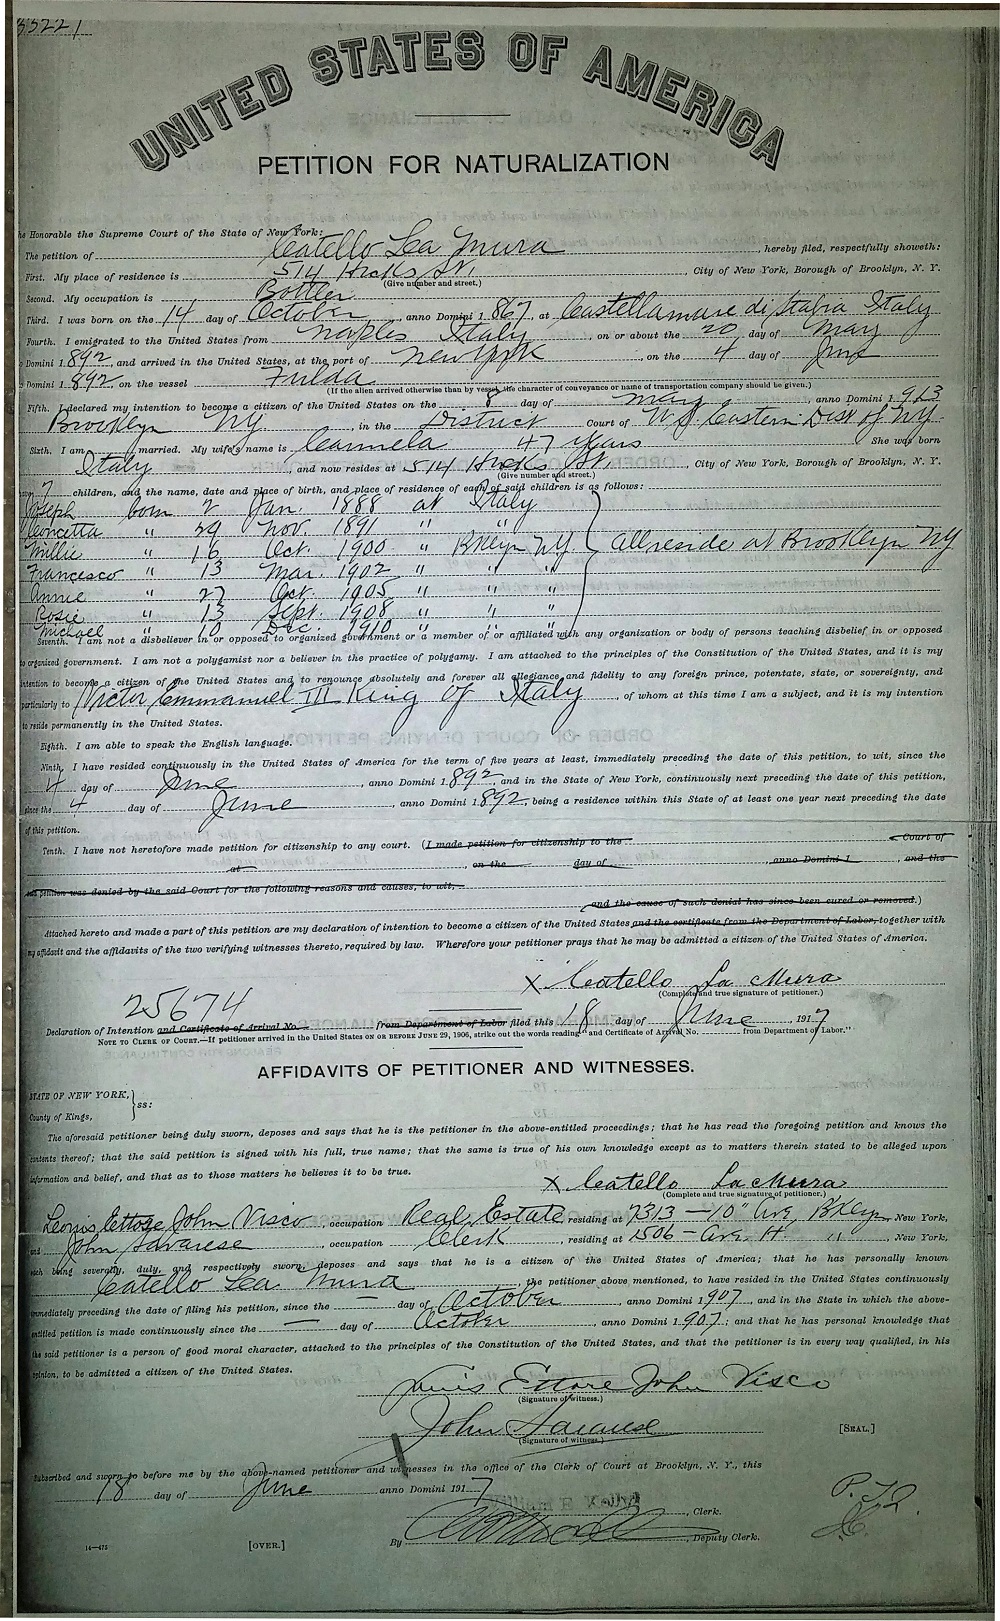 UNITED STATES OF AMERICA
PETITION FOR NATURALIZATION
Honorable the Supreme Court of the State of New York:
The petition of Catello La Mura, hereby filed, respectfully showeth:
First. My place of residence is 514 Hicks St., City of New York, Borough of Brooklyn, N. Y.
(Give number and street.)
Second. My occupation is Bottler
Third. I was born on the 14 day of October, anno Domini 1867, at Castellamare di Stabia Italy
Fourth. I emigrated to the United States from Naples Italy, on or about the 20 day of May
Domini 1892, and arrived in the United States, at the port of New York, on the 4 day of June
Domini 1892 on the vessel Fulda
(If the alien arrived otherwise than by vessel, the character of conveyance or name of transportation company should be given.)
Fifth. I declared my intention to become a citizen of the United States on the 8 day of May, anno Domini 1913
Brooklyn NY, in the District Court of U.S. Eastern Dist of NY.
Sixth. I am married. My wife's name is Carmela 47 years She was born
Italy, and now resides at 514 Hicks St., City of New York, Borough of Brooklyn, N. Y.
(Give number and street.)
7 children, and the name, date and place of birth, and place of residence of each of said children is as follows:
Joseph born 2 Jan. 1888 at Italy
Concetta " 24 Nov. 1891 " "
Millie " 16 Oct. 1900 " Bklyn NY } All reside at Brooklyn NY
Francesco " 13 Mar. 1902 " "
Annie " 27 Oct. 1905 " " "
Rosie " 13 Sept. 1908 " " "
Michael " 10 Dec. 1910 " " "
Seventh. I am not a disbeliever in or opposed to organized government or a member of or affiliated with any organization or body of persons teaching disbelief in or opposed
to organized government. I am not a polygamist nor a believer in the practice of polygamy. I am attached to the principles of the Constitution of the United States, and it is my
intention to become a citizen of the United States and to renounce absolutely and forever all allegiance and fidelity to any foreign prince, potentate, state, or sovereignty, and
particularly to Victor Emmanuel III King of Italy, of whom at this time I am a subject, and it is my intention
to reside permanently in the United States.
Eighth. I am able to speak the English language.
Ninth. I have resided continuously in the United States of America for the term of five years at least, immediately preceding the date of this petition, to wit, since the
4 day of June, anno Domini 1892, and in the State of New York, continuously next preceding the date of this petition,
since the 4 day of June, anno Domini 1892, being a residence within this State of at least one year next preceding the date
of this petition.
Tenth. I have not heretofore made petition for citizenship to any court. (I made petition for citizenship to the Court of
at on the day of, anno Domini 1, and the
petition was denied by the said Court for the following reasons and causes, to wit,
and the cause of such denial has since been cured or removed.)
Attached hereto and made a part of this petition are my declaration of intention to become a citizen of the United States and the certificate from the Department of Labor, together with
my affidavit and the affidavits of the two verifying witnesses thereto, required by law. Wherefore your petitioner prays that he may be admitted a citizen of the United States of America.
X Catello La Mura
(Complete and true signature of petitioner.)
25674
Declaration of Intention and Certificate of Arrival No. from Department of Labor filed this 18 day of June 1917
NOTE TO CLERK OF COURT.—If petitioner arrived in the United States ON OR BEFORE JUNE 29, 1906, strike out the words reading "and Certificate of Arrival No. from Department of Labor."
AFFIDAVITS OF PETITIONER AND WITNESSES.
STATE OF NEW YORK, } ss:
County of Kings,
The aforesaid petitioner being duly sworn, deposes and says that he is the petitioner in the above-entitled proceedings; that he has read the foregoing petition and knows the
contents thereof; that the said petition is signed with his full, true name; that the same is true of his own knowledge except as to matters therein stated to be alleged upon
information and belief, and that as to those matters he believes it to be true.
X Catello La Mura
(Complete and true signature of petitioner.)
Louis Ettore John Visco, occupation Real Estate residing at 7313 — 10" Ave, Bklyn, New York,
and John Savarese, occupation Clerk, residing at 1506 — Ave. H. ", New York,
each being severally, duly, and respectively sworn, deposes and says that he is a citizen of the United States of America; that he has personally known
Catello La Mura, the petitioner above mentioned, to have resided in the United States continuously
immediately preceding the date of filing his petition, since the — day of October anno Domini 1907, and in the State in which the above-
entitled petition is made continuously since the — day of October anno Domini 1907; and that he has personal knowledge that
the said petitioner is a person of good moral character, attached to the principles of the Constitution of the United States, and that the petitioner is in every way qualified, in his
opinion, to be admitted a citizen of the United States.
Louis Ettore John Visco
(Signature of witness.)
John Savarese
(Signature of witness.)
[SEAL.]
Subscribed and sworn to before me by the above-named petitioner and witnesses in the office of the Clerk of Court at Brooklyn, N. Y., this
18 day of June anno Domini 1917
, Clerk.
By , Deputy Clerk.
14—475 [OVER.]